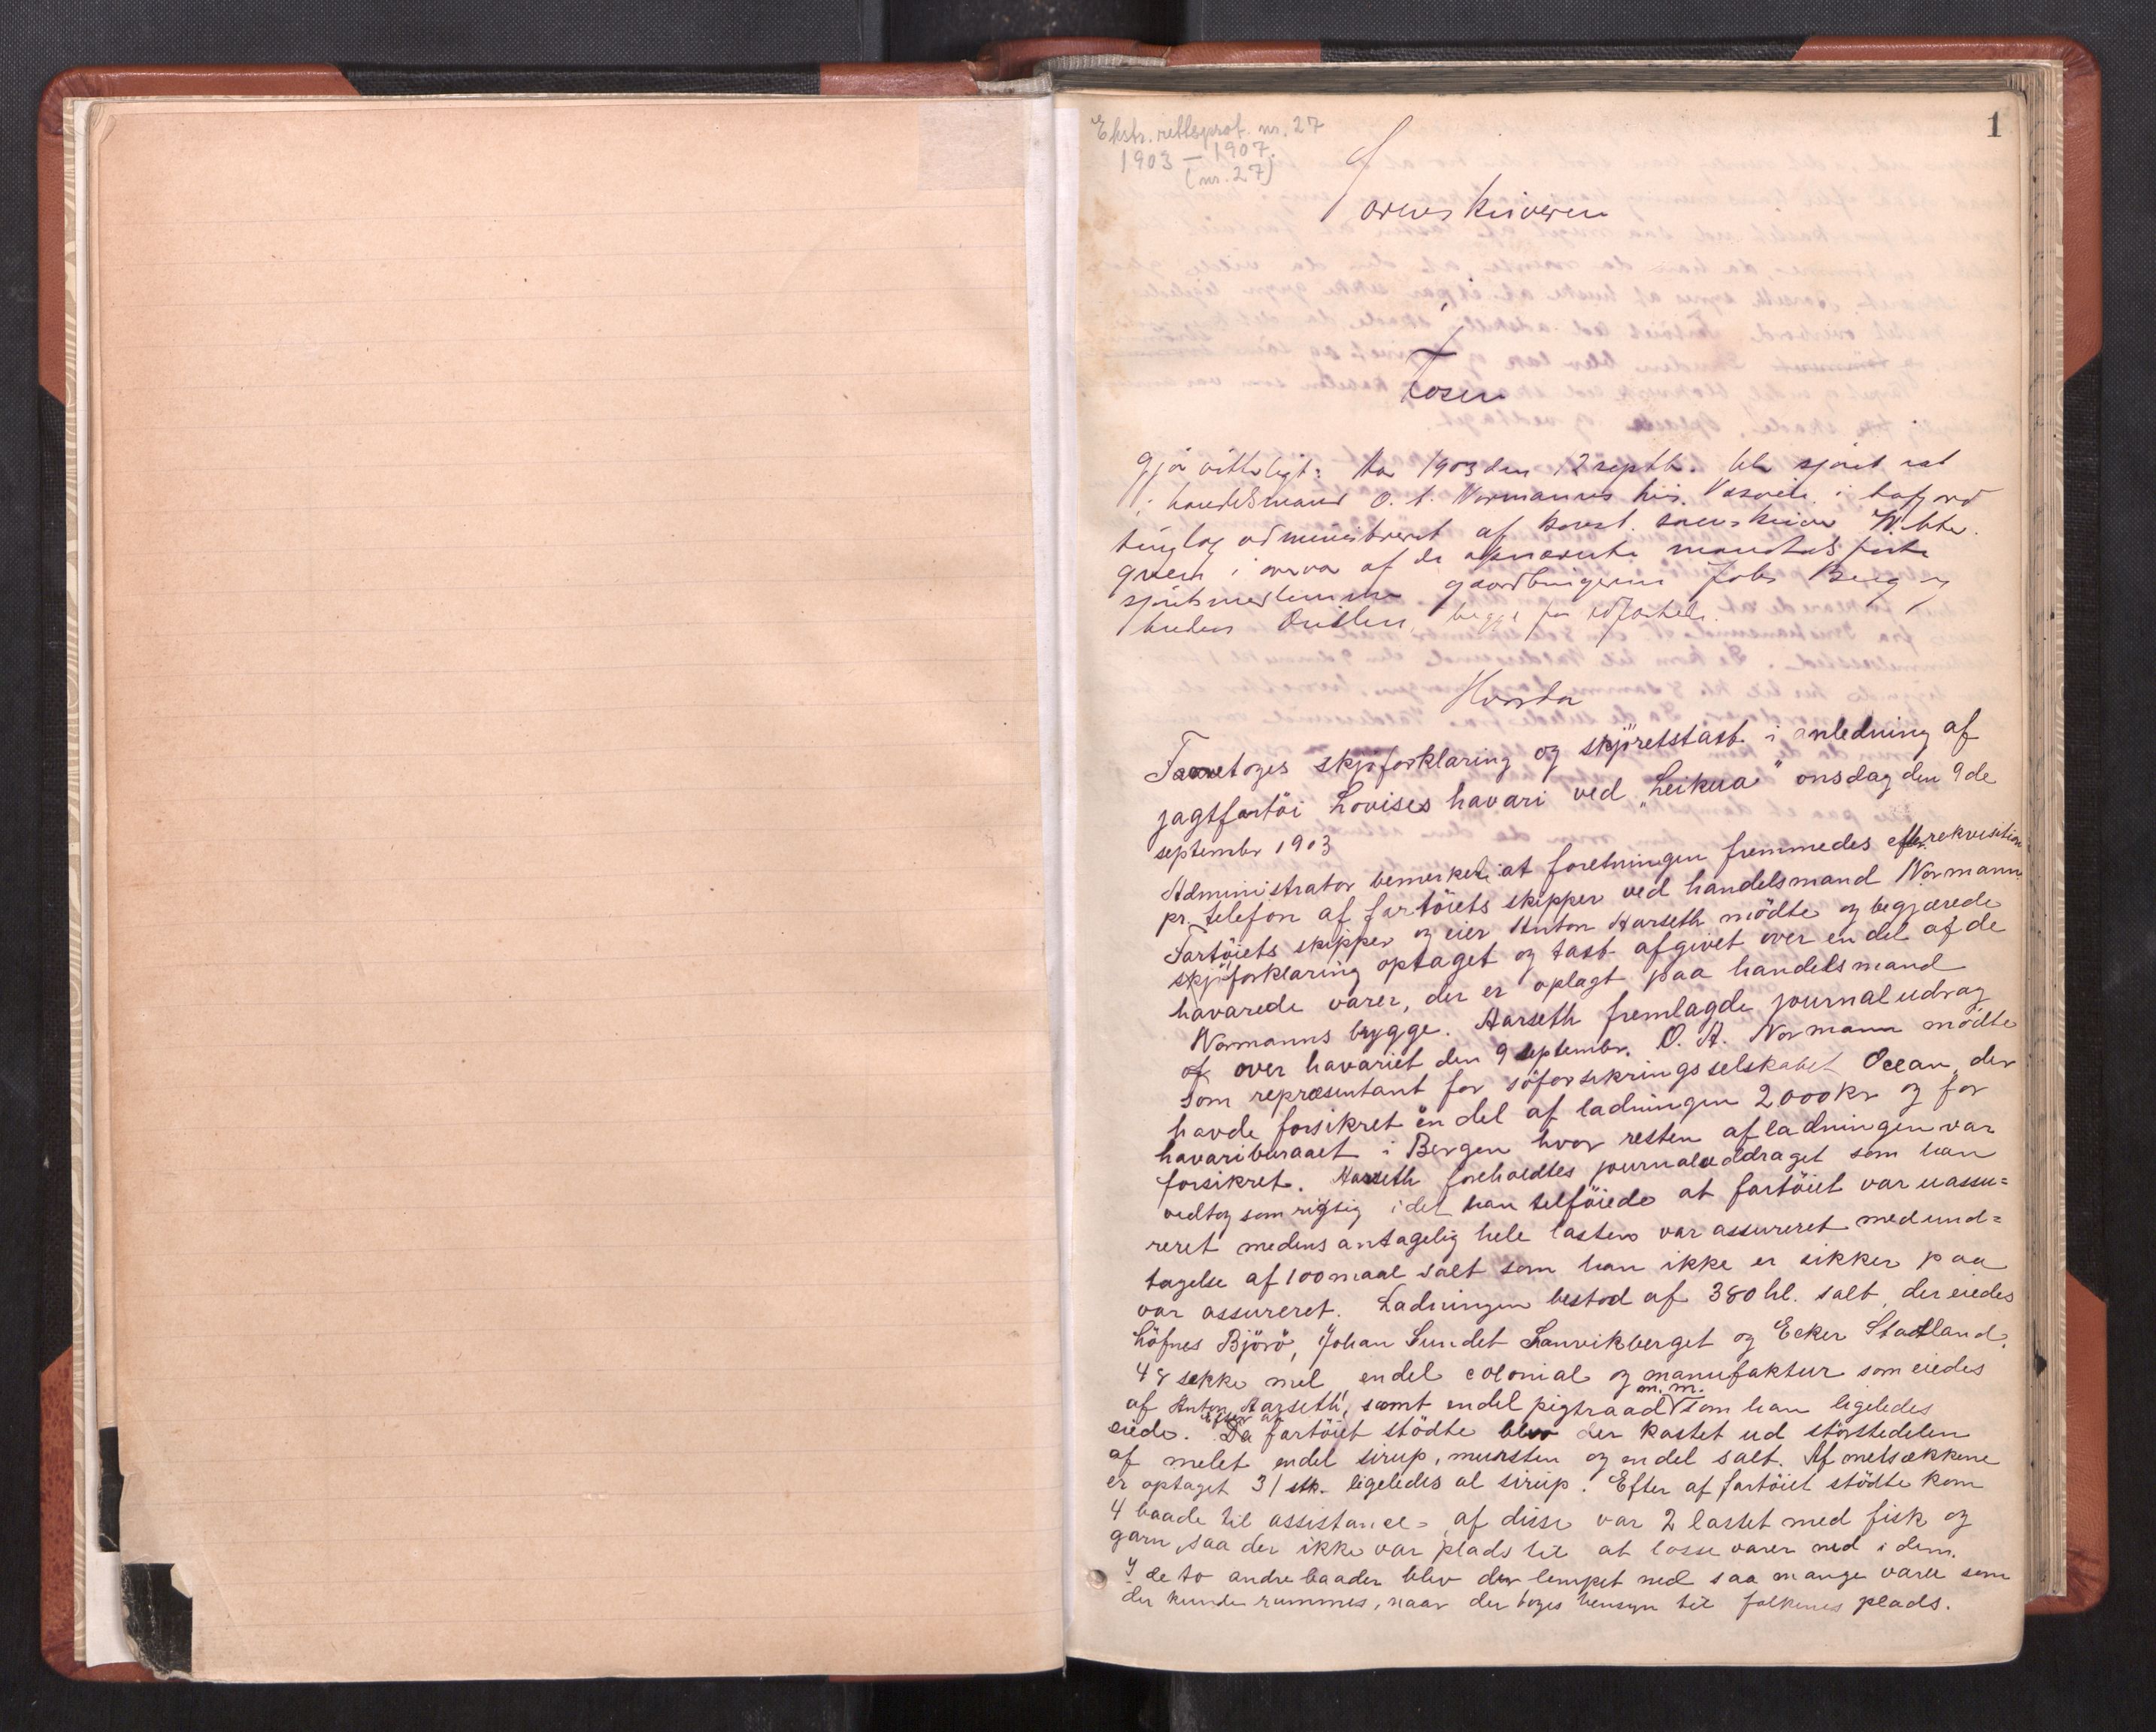 1
Ekstr. rettsprot. nr. 27
1903 – 1907.
(nr. 27)
Sorenskriveren
i
Fosen
Gjør vitterligt: Aar 1903 den 12 septb. blev sjøret sat
i handelsmand O. A. Normanns hus
tinglag administreret af konst. sorenskriver
i overvær af de
sjøretsmedlemmer gaardbrugerne Johs Berg og
begge fra
Hvorda
Foretoges skjøforklaring og skjöretstast i anledning af
jagtfartöi Lovises havari ved "Leikua" onsdag den 9de
septembr 1903
Administrator bemerket: at forretningen fremmedes efter rekvisition
pr. telefon af fartöiets skipper ved handelsmand Normann.
Fartöiets skipper og eier Anton Aarseth mödte og begjærede
skjöforklaring optaget og tast afgivet over en del af de
havarede varer, der er oplagt paa handelsmand
Normanns brygge. Aarseth fremlagde journaludrag
af over havariet den 9 septembr. O. A. Normann mödte
som repræsentant for söforsikringsselskabet Ocean, der
havde forsikret en del af ladningen 2000 kr og for
havariburaaet i Bergen hvor resten af ladningen var
forsikret. Aarseth foreholdtes journaluddraget som han
vedtog som rigtig idet han telföiede at fartöiet var uassu=
reret medens antagelig hele lasten var assureret med und=
tagelse af 100 maal salt som han ikke er sikker paa
var assureret. Ladningen bestod af 380 hl. salt, der eiedes
Höfnes Björö, Johan Sundet Sanvikberget og Ecker Stadland.
48 sekke mel endel colonial og manufaktur som eiedes
af Anton Aarseth, samt endel pigtraad m. m. som han ligeledes
eiede. Efter at Da fartöiet stödte blev der kastet ud störstedelen
af melet endel sirup, mursten og endel salt. Af melsækkene
er optaget 31 stk. ligeledes al sirup. Efter af fartöiet stödte kom
4 baade til assistance, af disse var 2 lastet med fisk og
garn, saa der ikke var plads til at losse varer ned i dem.
I de to andre baader blev der lempet ned saa mange varer som
der kunde rummes, naar der toges hensyn til folkenes plads.